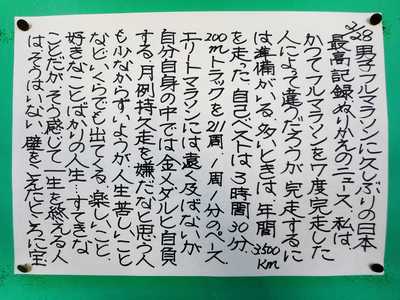 2/28 男子フルマラソンに久しぶりの日本
最高記録ぬりかえのニュース 私は
かつてフルマラソンを7度完走した
人によって違うだろうが完走するに
は準備がいる 多いときは、年間3500km
を走った 自己ベストは3時間30分、
200mトラックを211周 1周1分のペース
エリートマラソンには遠く及ばないが
自分自身の中では金メダルと自負
する 月例持久走を嫌だなと思う人
も少なからずいようが人生苦しいこと
などいくらでも出てくる 楽しいこと、
好きなことばかりの人生…すてきな
ことだが そう感じて一生を終える人
はそうはいない 壁をこえたところに宝